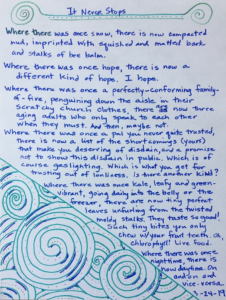 It Never Stops
Where there was once snow, there is now compacted
mud, imprinted with squished and matted bark
and stalks of bee balm.
Where there was once hope, there is now a
different kind of hope. I hope.
Where there was once a perfectly-conforming family-
of-five, penguining down the aisle in their
scratchy church clothes, there are now three
aging adults who only speak to each other
when they must. And then, maybe not.
Where there was once a pal you never quite trusted,
there is now a list of the shortcomings (yours)
that make you deserving of disdain, and a promise
not to show this disdain in public. Which is of
course gaslighting. Which is what you get for
trusting out of lonliness, is there another kind?
Where there was once kale, leafy and green-
vibrant, going daily into the belly or the
freezer, there are now tiny perfect
leaves unfurling from the twisted
moldy stalks. They taste so good!
Such tiny bites you only
chew w/your front teeth. Oh,
Chlorophyll! Live food.
Where there was once
nighttime, there is
now daytime. On
and on and
vice-versa.
-24-19